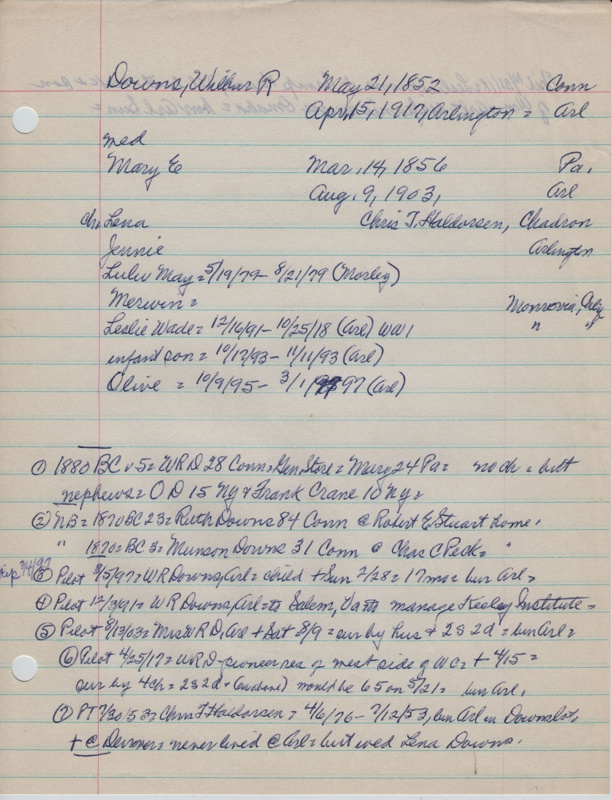 Downs, Wilbur R May 21, 1852 Conn
Apr, 15, 1917, Arlington = Arl
med
Mary E Mar. 14, 1856 Pa,
Aug. 9, 1903, Arl
ch= Lena Chris T. Haldorsen, Chadron
Jennie Arlington
Lulu May = 5/19/79 - 8/21/79 (Morley)
Merwin = Monrovia,
Leslie Wade = 12/16/91 - 10/25/18 (Arl) WW1 "  "
infant son = 10/17/93 - 11/11/93 (Arl)
Olive = 10/9/95 - 3/1/97 (Arl)
① 1880 BC v 5 = WR D 28 Conn = Gen. Store = Mary 24 Pa = no ch = but
nephews = O D 15 Ny & Frank Crane 10 Ny =
② NB = 1870 BC 23 = Ruth Downs 84 Conn @ Robert E Stuart home,
" 1870 = BC 3 = Munson Downs 31 Conn @ Chas C Peck = "
③ Pilot 3/5/97 = WR Downs, Arl = child + Sun 2/28 = 17 mo = bur Arl =
④ Pilot 12/3/91 = WR Downs, Arl = to Salem, manage Keeley Institute =
⑤ Pilot 8/13/03 = Mrs WR D, Arl + Sat 8/9 = sur by hus + 2 s 2 d = bur Arl =
⑥ Pilot 4/25/17 = WR D - pioneer res of west side of WC = + 4/15 =
sur by 4 ch = 2 s 2 d + would be 65 on 5/21 = bur Arl,
⑦ PT 7/30/53 = Chris T Haldorsen = 4/6/76 - 7/12/53, bur Arl in Downs lot,
+ @ never lived @ Arl = but wed Lena Downs,